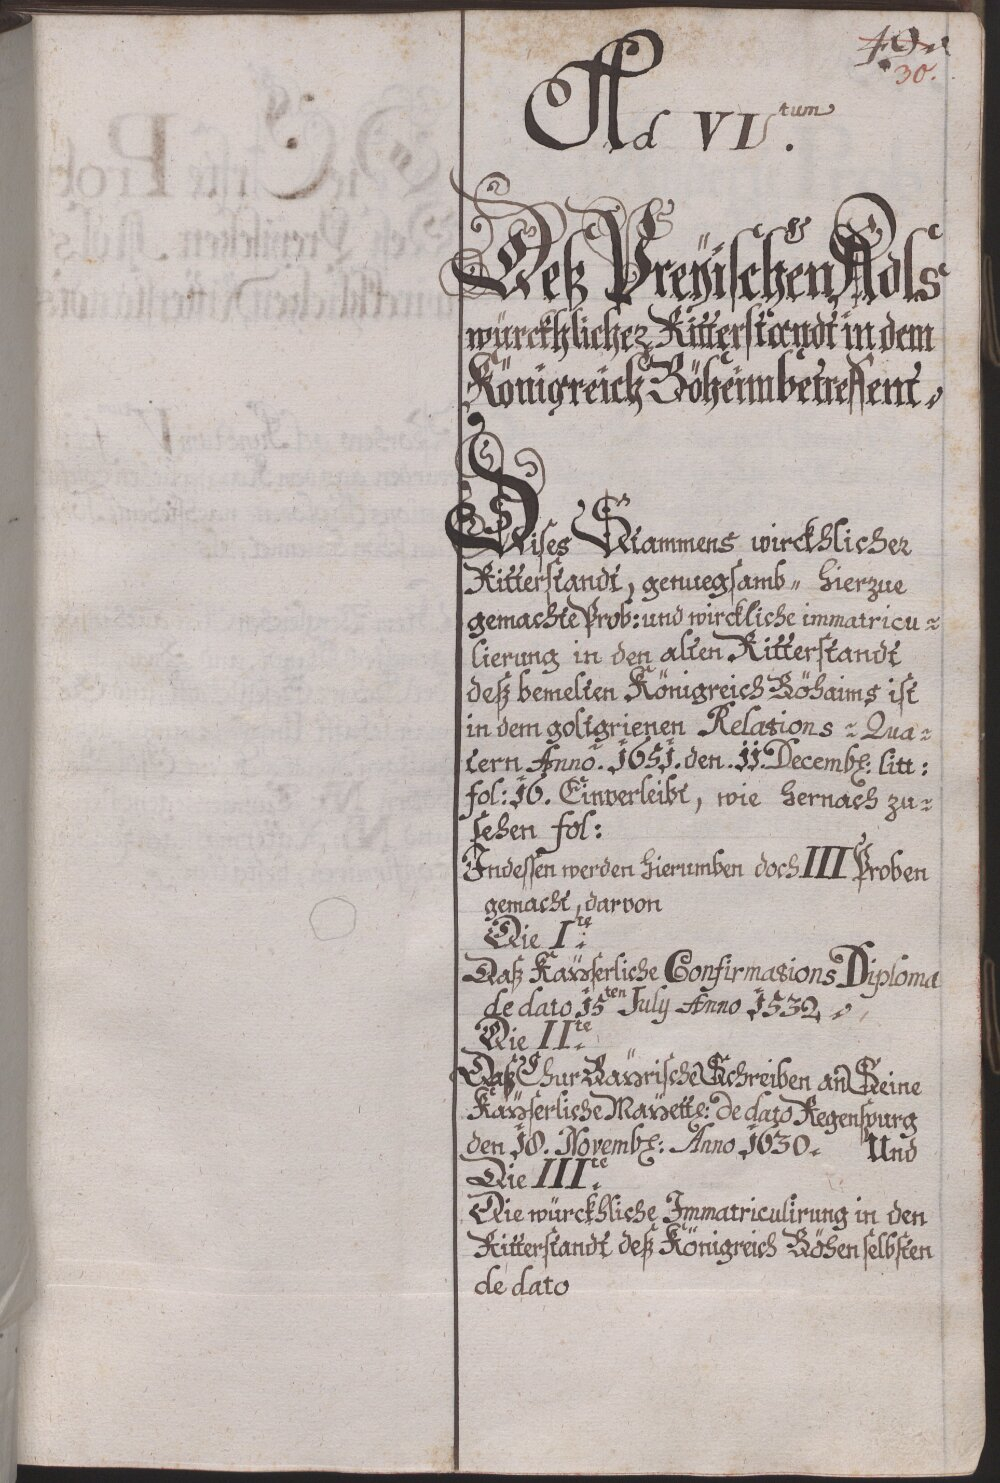 49.
30.
Ad VI.tum
Deß Preÿischen Adls
würckhlicher Ritterstandt in dem
Königreich Böheim betreffent.
Dises Stammens wirckhlicher
Ritterstandt, genuegsamb hierzue
gemachte Prob: und wirckliche immatricu=
lierung in den alten Ritterstandt
deß bemelten Königreich Böhaims ist
in dem goltgrienen Relations=Qua=
tern Anno. 1651. den. 11. Decemb: litt:
fol: 16. Einverleibt, wie hernach zu=
sehen fol:
Indessen werden hierumben doch III Proben
gemacht, darvon
Die I.te
Daß Kaÿserliche Confirmations Diploma
de dato 15ten July Anno 1532.
Die II.te
Daß Chur Baÿrische Schreiben an Seine
Kaÿserliche Maÿett: de dato Regenspurg
den 18. Novemb: Anno 1630. Und
Die III.te
Die würckhliche Immatriculirung in den
Ritterstandt deß Königreich Böhen selbsten
de dato